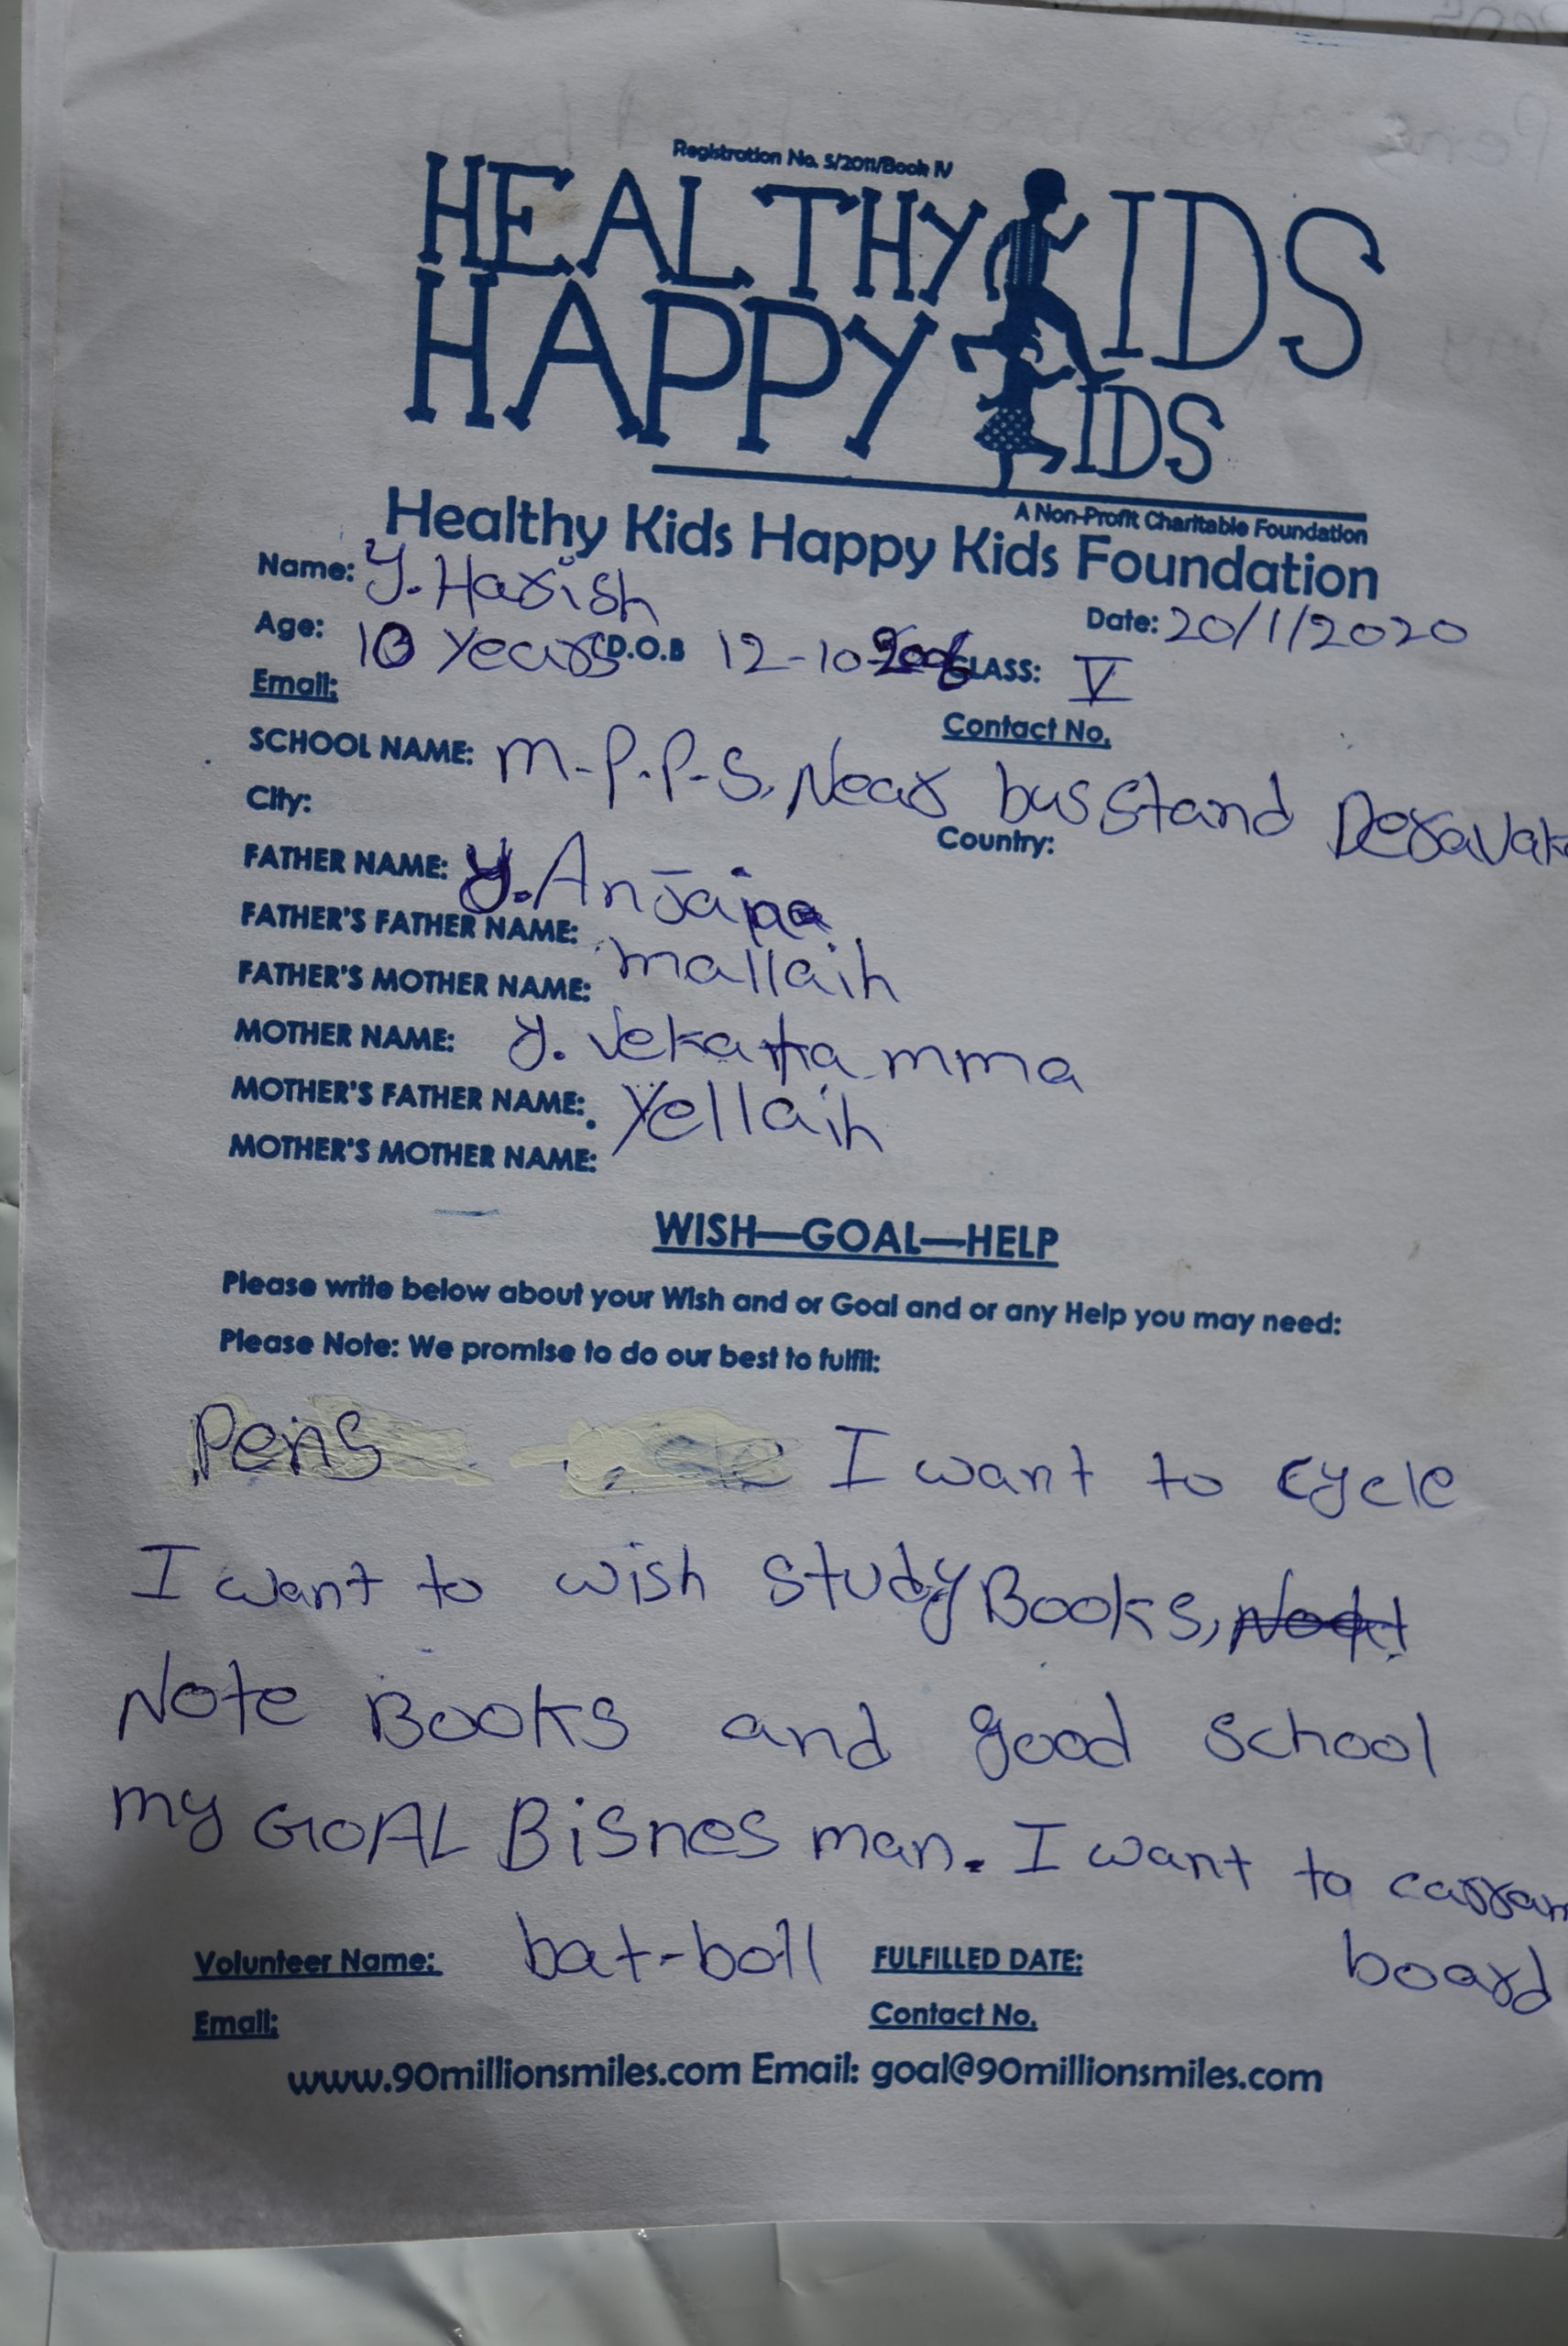 Registration No. 5/2011/Book IV
HEALTHY KIDS
HAPPY KIDS
A Non-Profit Charitable Foundation
Healthy Kids Happy Kids Foundation
Name: Y. Harish
Date: 20/1/2020
Age: 10 years D.O.B 12-10- CLASS: V
Email:
Contact No.
SCHOOL NAME: M-P.P-S, Near bus stand
City:
Country:
FATHER NAME: Y.
FATHER'S FATHER NAME: mallaih
FATHER'S MOTHER NAME:
MOTHER NAME: Y. Vekatamma
MOTHER'S FATHER NAME: Yellaih
MOTHER'S MOTHER NAME:
WISH—GOAL—HELP
Please write below about your Wish and or Goal and or any Help you may need:
Please Note: We promise to do our best to fulfil:
Pens I want to cycle
I want to wish study Books,
Note Books and good school
my GOAL Bisnes man. I want to carram
bat-boll board
Volunteer Name: FULFILLED DATE:
Email: Contact No.
www.90millionsmiles.com Email: goal@90millionsmiles.com